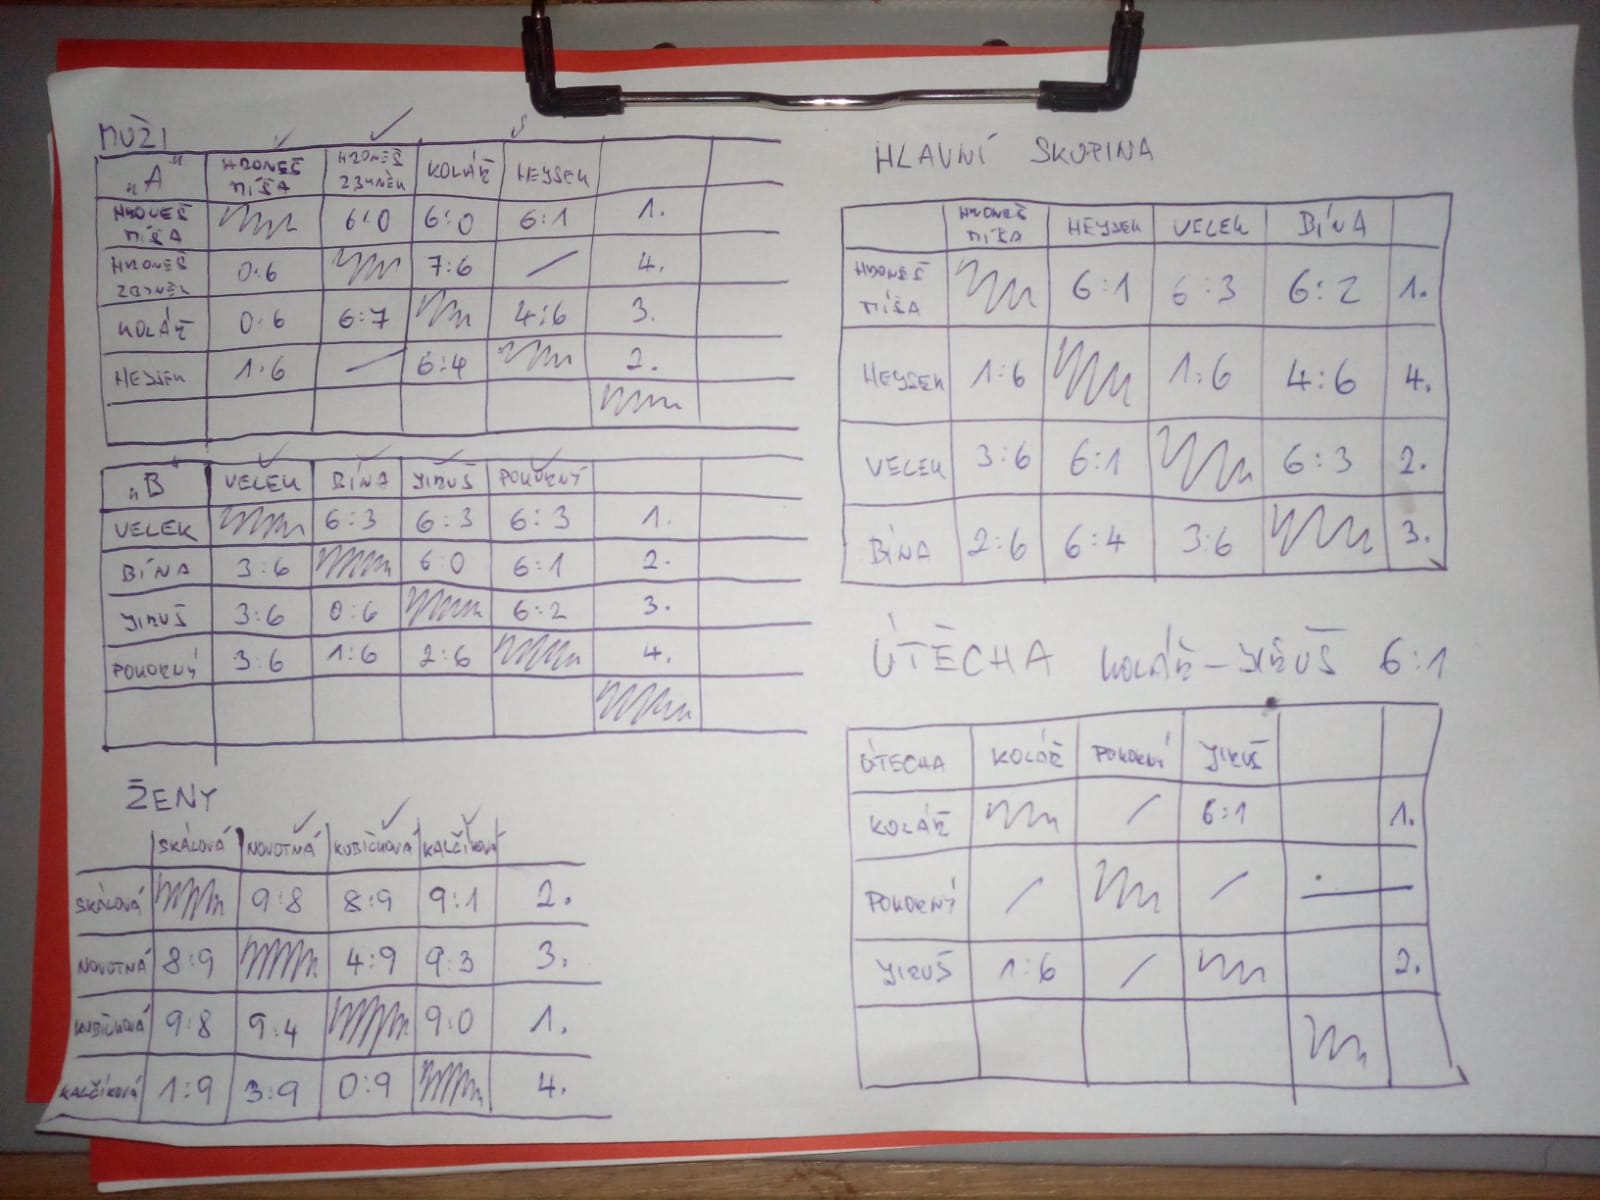 MUŽI
„A“ HRONEŠ MÍŠA HRONEŠ ZBYNĚK KOLÁŘ HEYSEK
HRONEŠ MÍŠA 6:0 6:0 6:1 1.
HRONEŠ ZBYNĚK 0:6 7:6 / 4.
KOLÁŘ 0:6 6:7 4:6 3.
HEYSEK 1:6 / 6:4 2.
„B“ VELEK BÍNA JIRUŠ POKORNÝ
VELEK 6:3 6:3 6:3 1.
BÍNA 3:6 6:0 6:1 2.
JIRUŠ 3:6 0:6 6:2 3.
POKORNÝ 3:6 1:6 2:6 4.
ŽENY
SKÁLOVÁ NOVOTNÁ KUBÍČKOVÁ KALČÍKOVÁ
SKÁLOVÁ 9:8 8:9 9:1 2.
NOVOTNÁ 8:9 4:9 9:3 3.
KUBÍČKOVÁ 9:8 9:4 9:0 1.
KALČÍKOVÁ 1:9 3:9 0:9 4.
HLAVNÍ SKUPINA
HRONEŠ MÍŠA HEYSEK VELEK BÍNA
HRONEŠ MÍŠA 6:1 6:3 6:2 1.
HEYSEK 1:6 1:6 4:6 4.
VELEK 3:6 6:1 6:3 2.
BÍNA 2:6 6:4 3:6 3.
ÚTĚCHA KOLÁŘ – JIRUŠ 6:1
ÚTECHA KOLÁŘ POKORNÝ JIRUŠ
KOLÁŘ / 6:1 1.
POKORNÝ / / —
JIRUŠ 1:6 / 2.